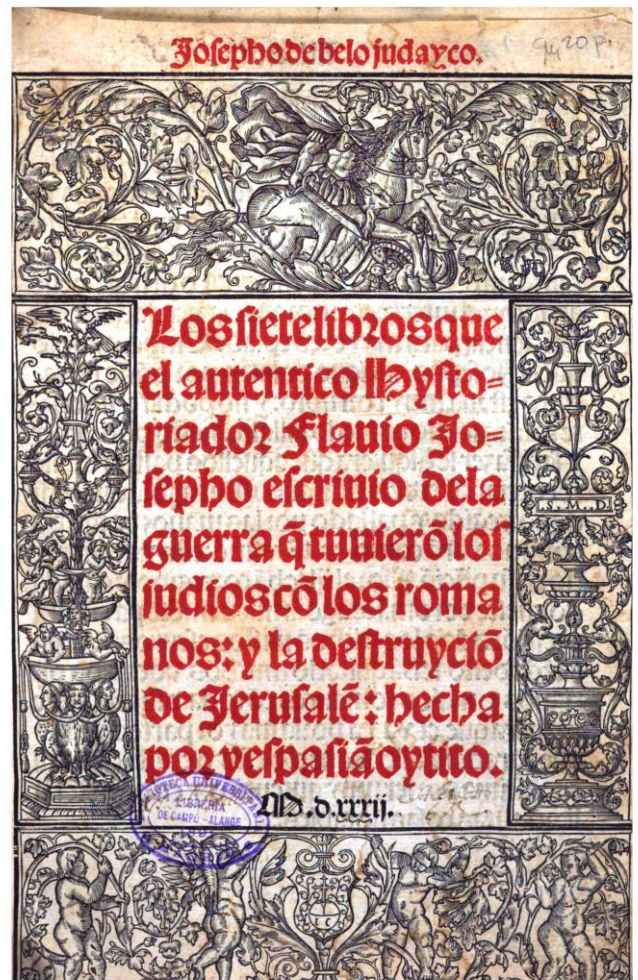 Josepho de belo judayco.
Los siete libros que
el autentico Hysto=
riador Flauio Jo=
sepho escriuio dela
guerra q̃ tuuierõ los
judios cõ los roma
nos: y la destruyciõ
de Jerusalẽ: hecha
por vespasião y tito.
M.d.xxxij.
.S.M.D.
BIBLIOTECA UNIVERSITARIA
LIBRERIA
DE CAMPO-ALANGE